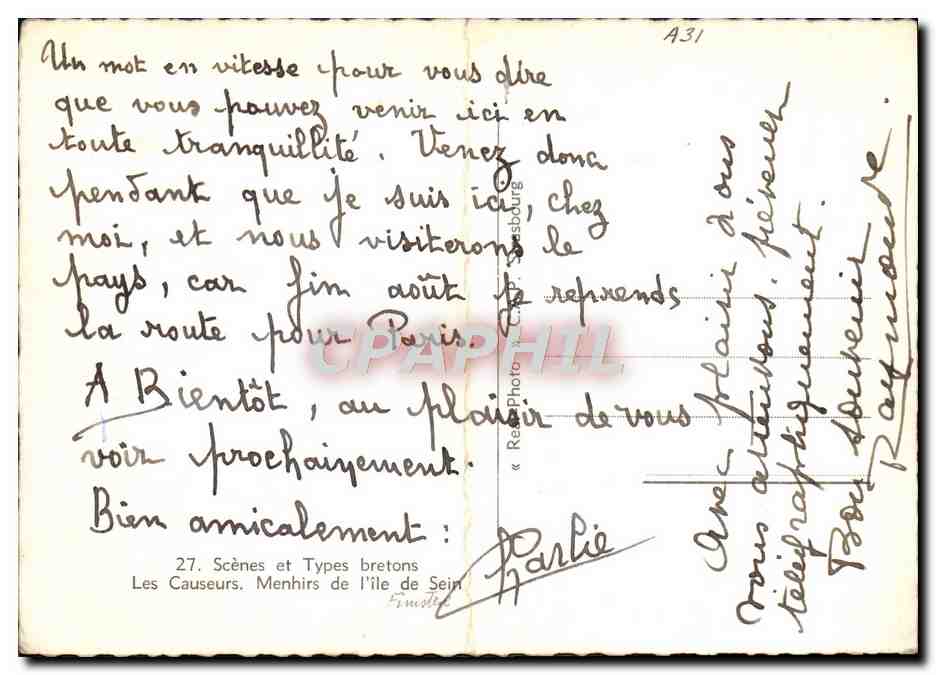 A31
Un mot en vitesse pour vous dire
que vous pouvez venir ici en
toute tranquillité. Venez donc
pendant que je suis ici, chez
moi, et nous visiterons le
pays, car fin août je reprends
la route pour Paris.
A Bientôt, au plaisir de vous
voir prochainement.
Bien amicalement :
27. Scènes et Types bretons
Les Causeurs. Menhirs de l'île de Sein
Finistère
« Real-Photo » C.A.P. Strasbourg
Avec plaisir nous
vous attendons. prévenez
télégraphiquement.
Bon souvenir
Raymonde.
CPAPHIL